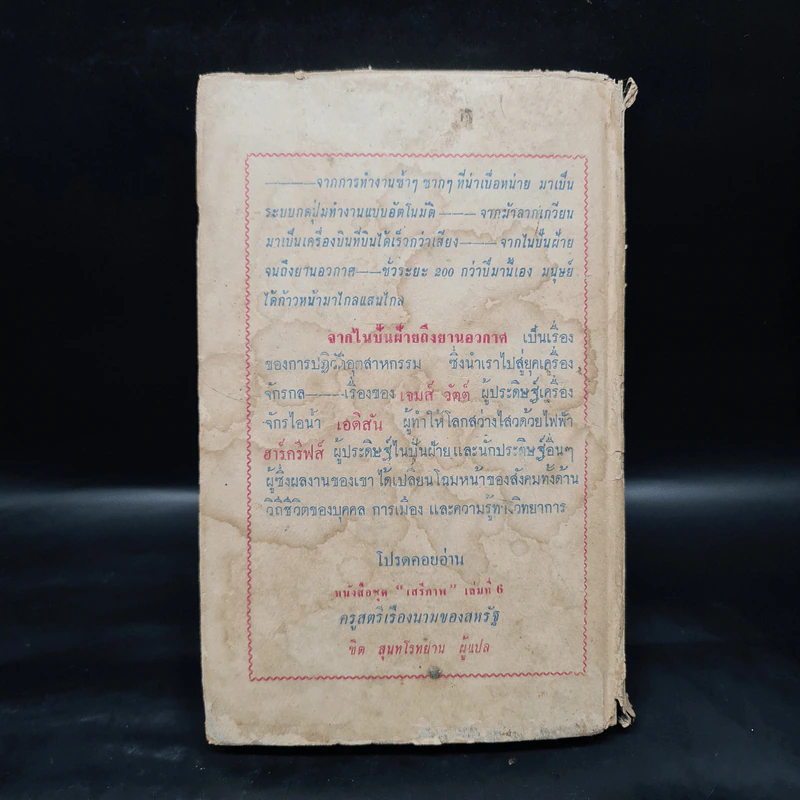 ———จากการทำงานซ้ำๆ ซากๆ ที่น่าเบื่อหน่าย มาเป็น
ระบบกดปุ่มทำงานแบบอัตโนมัติ——จากม้าลากเกวียน
มาเป็นเครื่องบินที่บินได้เร็วกว่าเสียง——จากไนปั่นฝ้าย
จนถึงยานอวกาศ——ชั่วระยะ 200 กว่าปีมานี้เอง มนุษย์
ได้ก้าวหน้ามาไกลแสนไกล
จากไนปั่นฝ้ายถึงยานอวกาศ เป็นเรื่อง
ของการปฏิวัติอุตสาหกรรม ซึ่งนำเราไปสู่ยุคเครื่อง
จักรกล——เรื่องของ เจมส์ วัตต์ ผู้ประดิษฐ์เครื่อง
จักรไอน้ำ เอดิสัน ผู้ทำให้โลกสว่างไสวด้วยไฟฟ้า
ฮาร์กรีฟส์ ผู้ประดิษฐ์ไนปั่นฝ้าย และนักประดิษฐ์อื่นๆ
ผู้ซึ่งผลงานของเขา ได้เปลี่ยนโฉมหน้าของสังคมทั้งด้าน
วิถีชีวิตของบุคคล การเมือง และความรู้ทางวิทยาการ
โปรดคอยอ่าน
หนังสือชุด "เสรีภาพ" เล่มที่ 6
ครูสตรีเรืองนามของสหรัฐ
ชิต สุนทโรทยาน ผู้แปล